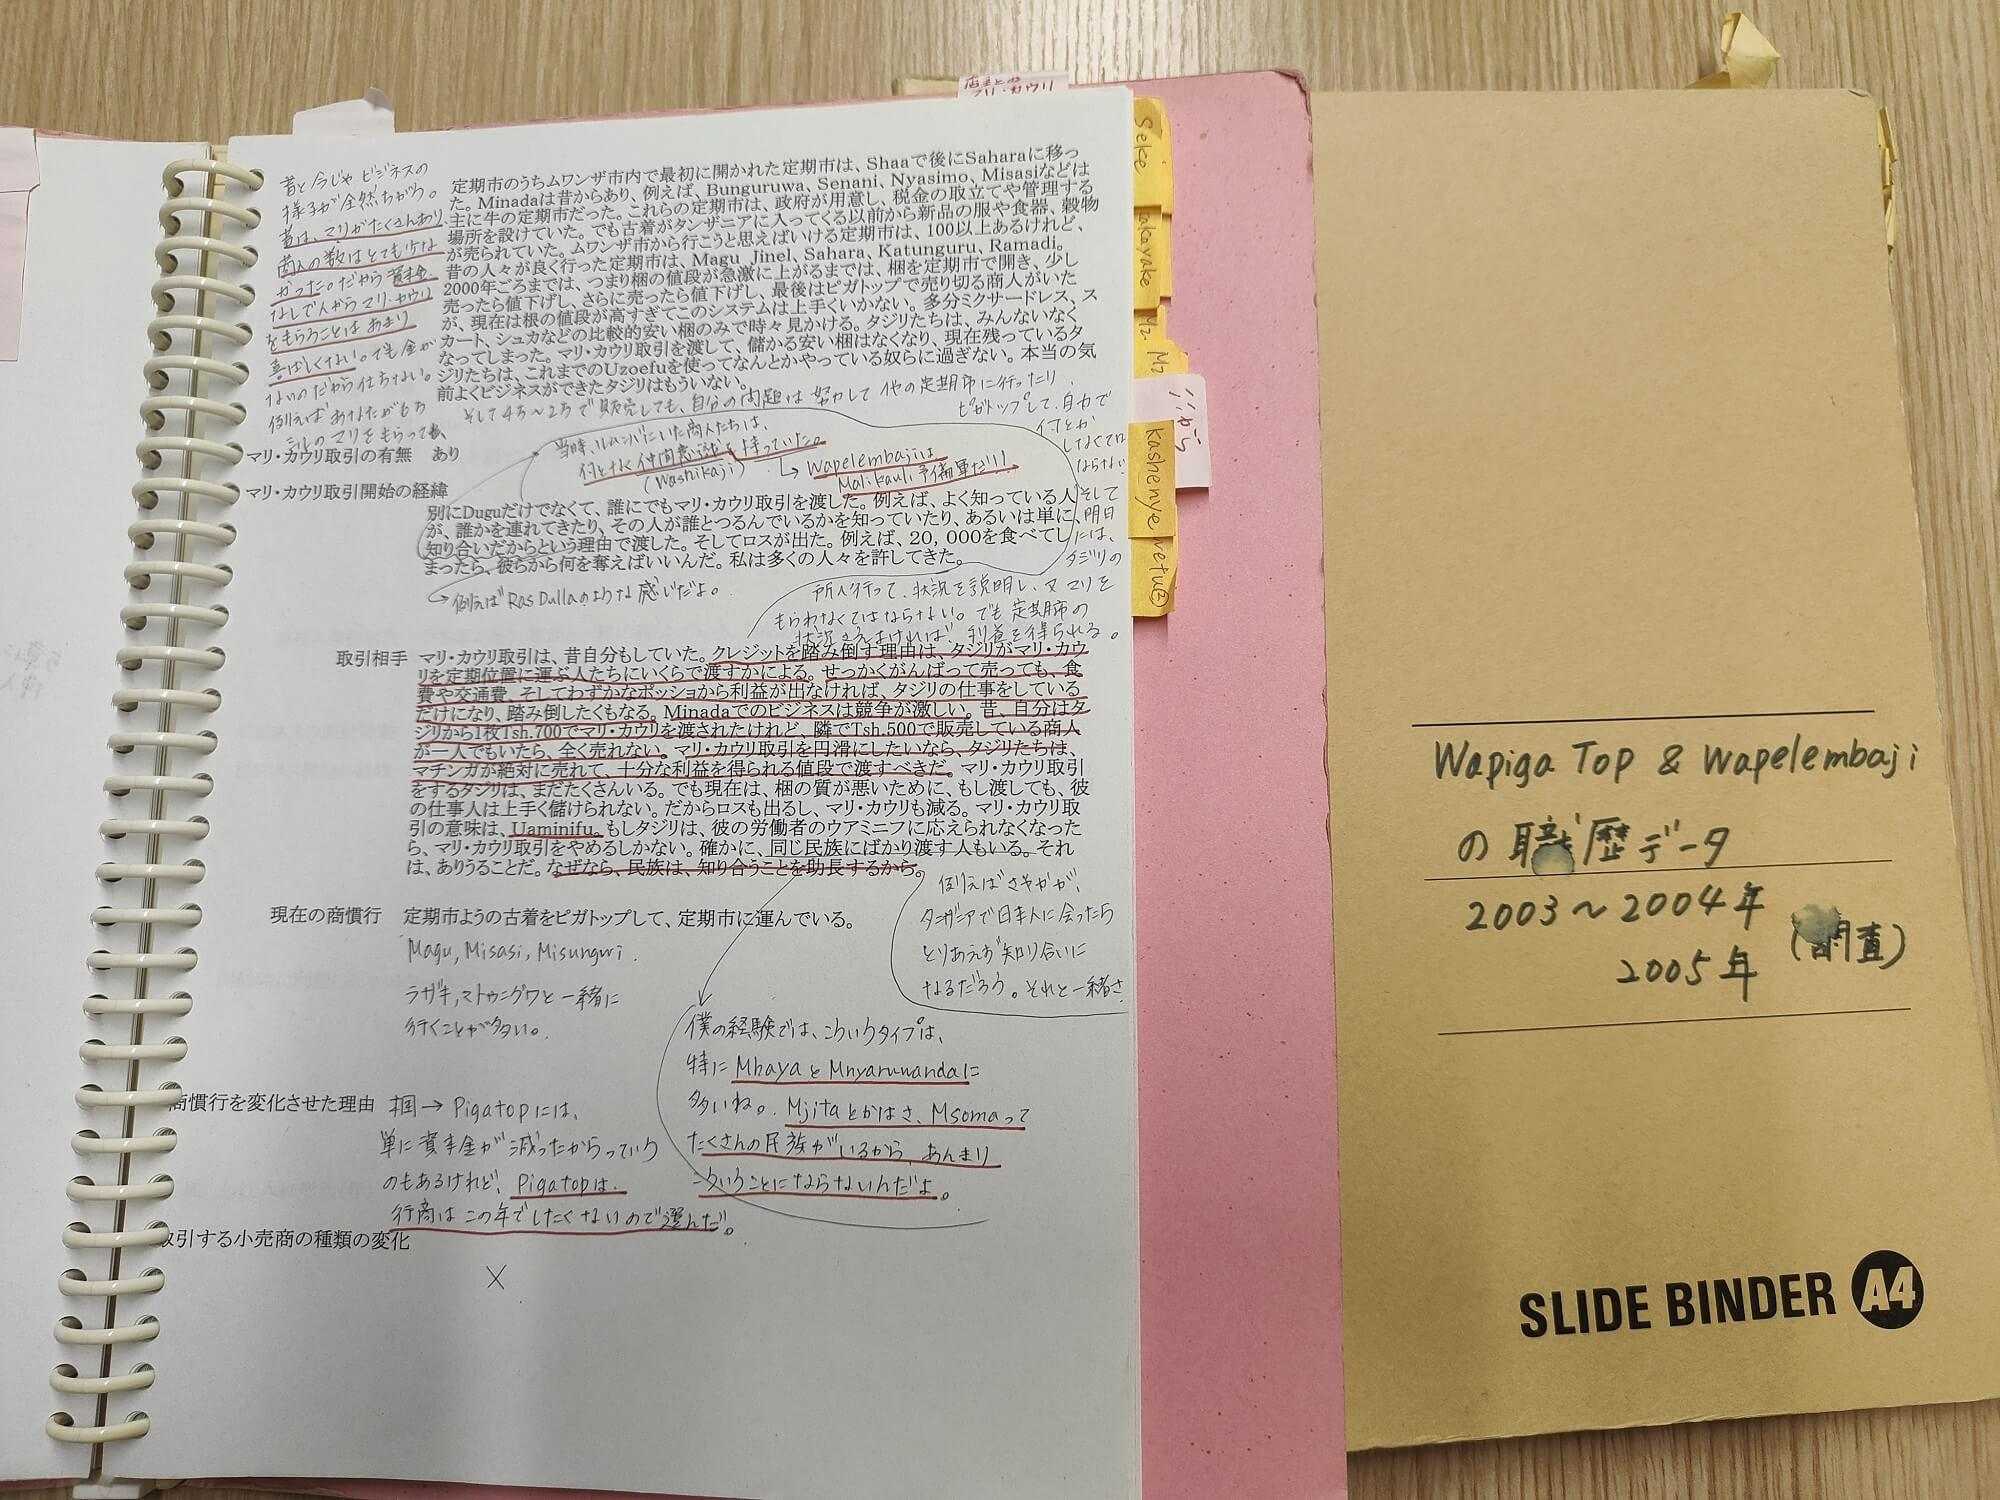 店まとめ
マリ・カウリ
昔と今じゃビジネスの
様子が全然ちがう。
昔は、マリがたくさんあり、
商人の数はとても少な
かった。だから資本金
なしで人からマリ・カウリ
をもらうことはあまり
喜ばしくない。でも金が
ないのだから仕方ない。
例えばあなたが6万
シルのマリをもらっても、
定期市のうちムワンザ市内で最初に開かれた定期市は、Shaaで後にSaharaに移っ
た。Minadaは昔からあり、例えば、Bunguruwa、Senani、Nyasimo、Misasiなどは
主に牛の定期市だった。これらの定期市は、政府が用意し、税金の取立てや管理する
場所を設けていた。でも古着がタンザニアに入ってくる以前から新品の服や食器、穀物
が売られていた。ムワンザ市から行こうと思えばいける定期市は、100以上あるけれど、
昔の人々が良く行った定期市は、Magu Jinel、Sahara、Katunguru、Ramadi。
2000年ごろまでは、つまり梱の値段が急激に上がるまでは、梱を定期市で開き、少し
売ったら値下げし、さらに売ったら値下げし、最後はピガトップで売り切る商人がいた
が、現在は根の値段が高すぎてこのシステムは上手くいかない。多分ミクサードレス、ス
カート、シュカなどの比較的安い梱のみで時々見かける。タジリたちは、みんないなく
なってしまった。マリ・カウリ取引を渡して、儲かる安い梱はなくなり、現在残っているタ
ジリたちは、これまでのUzoefuを使ってなんとかやっている奴らに過ぎない。本当の気
前よくビジネスができたタジリはもういない。
そして4万～2万で販売しても、自分の問題は努力して他の定期市に行ったり、
ピガトップして、自力で
何とか
しなくては
ならない
そして
明日
には、
タジリの
所へ行って、状況を説明し、又マリを
もらわなくてはならない。でも定期市の
状況さえよければ、利益を得られる。
マリ・カウリ取引の有無 あり
当時、ルムンバにいた商人たちは、
何となく仲間意識を持っていた。
(Washikaji)
→ Wapelembajiは
Mali.kauli予備軍だ!!!
マリ・カウリ取引開始の経緯
別にDuguだけでなくて、誰にでもマリ・カウリ取引を渡した。例えば、よく知っている人
が、誰かを連れてきたり、その人が誰とつるんでいるかを知っていたり、あるいは単に、
知り合いだからという理由で渡した。そしてロスが出た。例えば、20，000を食べてし
まったら、彼らから何を奪えばいいんだ。私は多くの人々を許してきた。
→例えばRas Dullaのような感じだよ。
取引相手 マリ・カウリ取引は、昔自分もしていた。クレジットを踏み倒す理由は、タジリがマリ・カウ
リを定期位置に運ぶ人たちにいくらで渡すかによる。せっかくがんばって売っても、食
費や交通費、そしてわずかなポッショから利益が出なければ、タジリの仕事をしている
だけになり、踏み倒したくもなる。Minadaでのビジネスは競争が激しい。昔、自分はタ
ジリから1枚Tsh.700でマリ・カウリを渡されたけれど、隣でTsh.500で販売している商人
が一人でもいたら、全く売れない。マリ・カウリ取引を円滑にしたいなら、タジリたちは、
マチンガが絶対に売れて、十分な利益を得られる値段で渡すべきだ。マリ・カウリ取引
をするタジリは、まだたくさんいる。でも現在は、梱の質が悪いために、もし渡しても、彼
の仕事人は上手く儲けられない。だからロスも出るし、マリ・カウリも減る。マリ・カウリ取
引の意味は、Uaminifu。もしタジリは、彼の労働者のウアミニフに応えられなくなった
ら、マリ・カウリ取引をやめるしかない。確かに、同じ民族にばかり渡す人もいる。それ
は、ありうることだ。なぜなら、民族は、知り合うことを助長するから。
例えばさやかが、
タンザニアで日本人に会ったら
とりあえず知り合いに
なるだろう。それと一緒さ
現在の商慣行 定期市ようの古着をピガトップして、定期市に運んでいる。
Magu, Misasi, Misungwi.
ラザキ,マトゥングワと一緒に
行くことが多い。
僕の経験では、こういうタイプは、
特にMhayaとMnyaruwandaに
多いね。MjitaとかはさMsomaって
たくさんの民族がいるから、あんまり
こういうことにならないんだよ。
商慣行を変化させた理由 梱→Pigatopには、
単に資本金が減ったからっていう
のもあるけれど、Pigatopは、
行商はこの年でしたくないので選んだ。
取引する小売商の種類の変化
×
Seke
akayake
Mz
Mz
ソバから
Kashenye
wetu②
Wapiga Top & Wapelembaji
の職歴データ
2003～2004年
2005年 (調査)
SLIDE BINDER A4